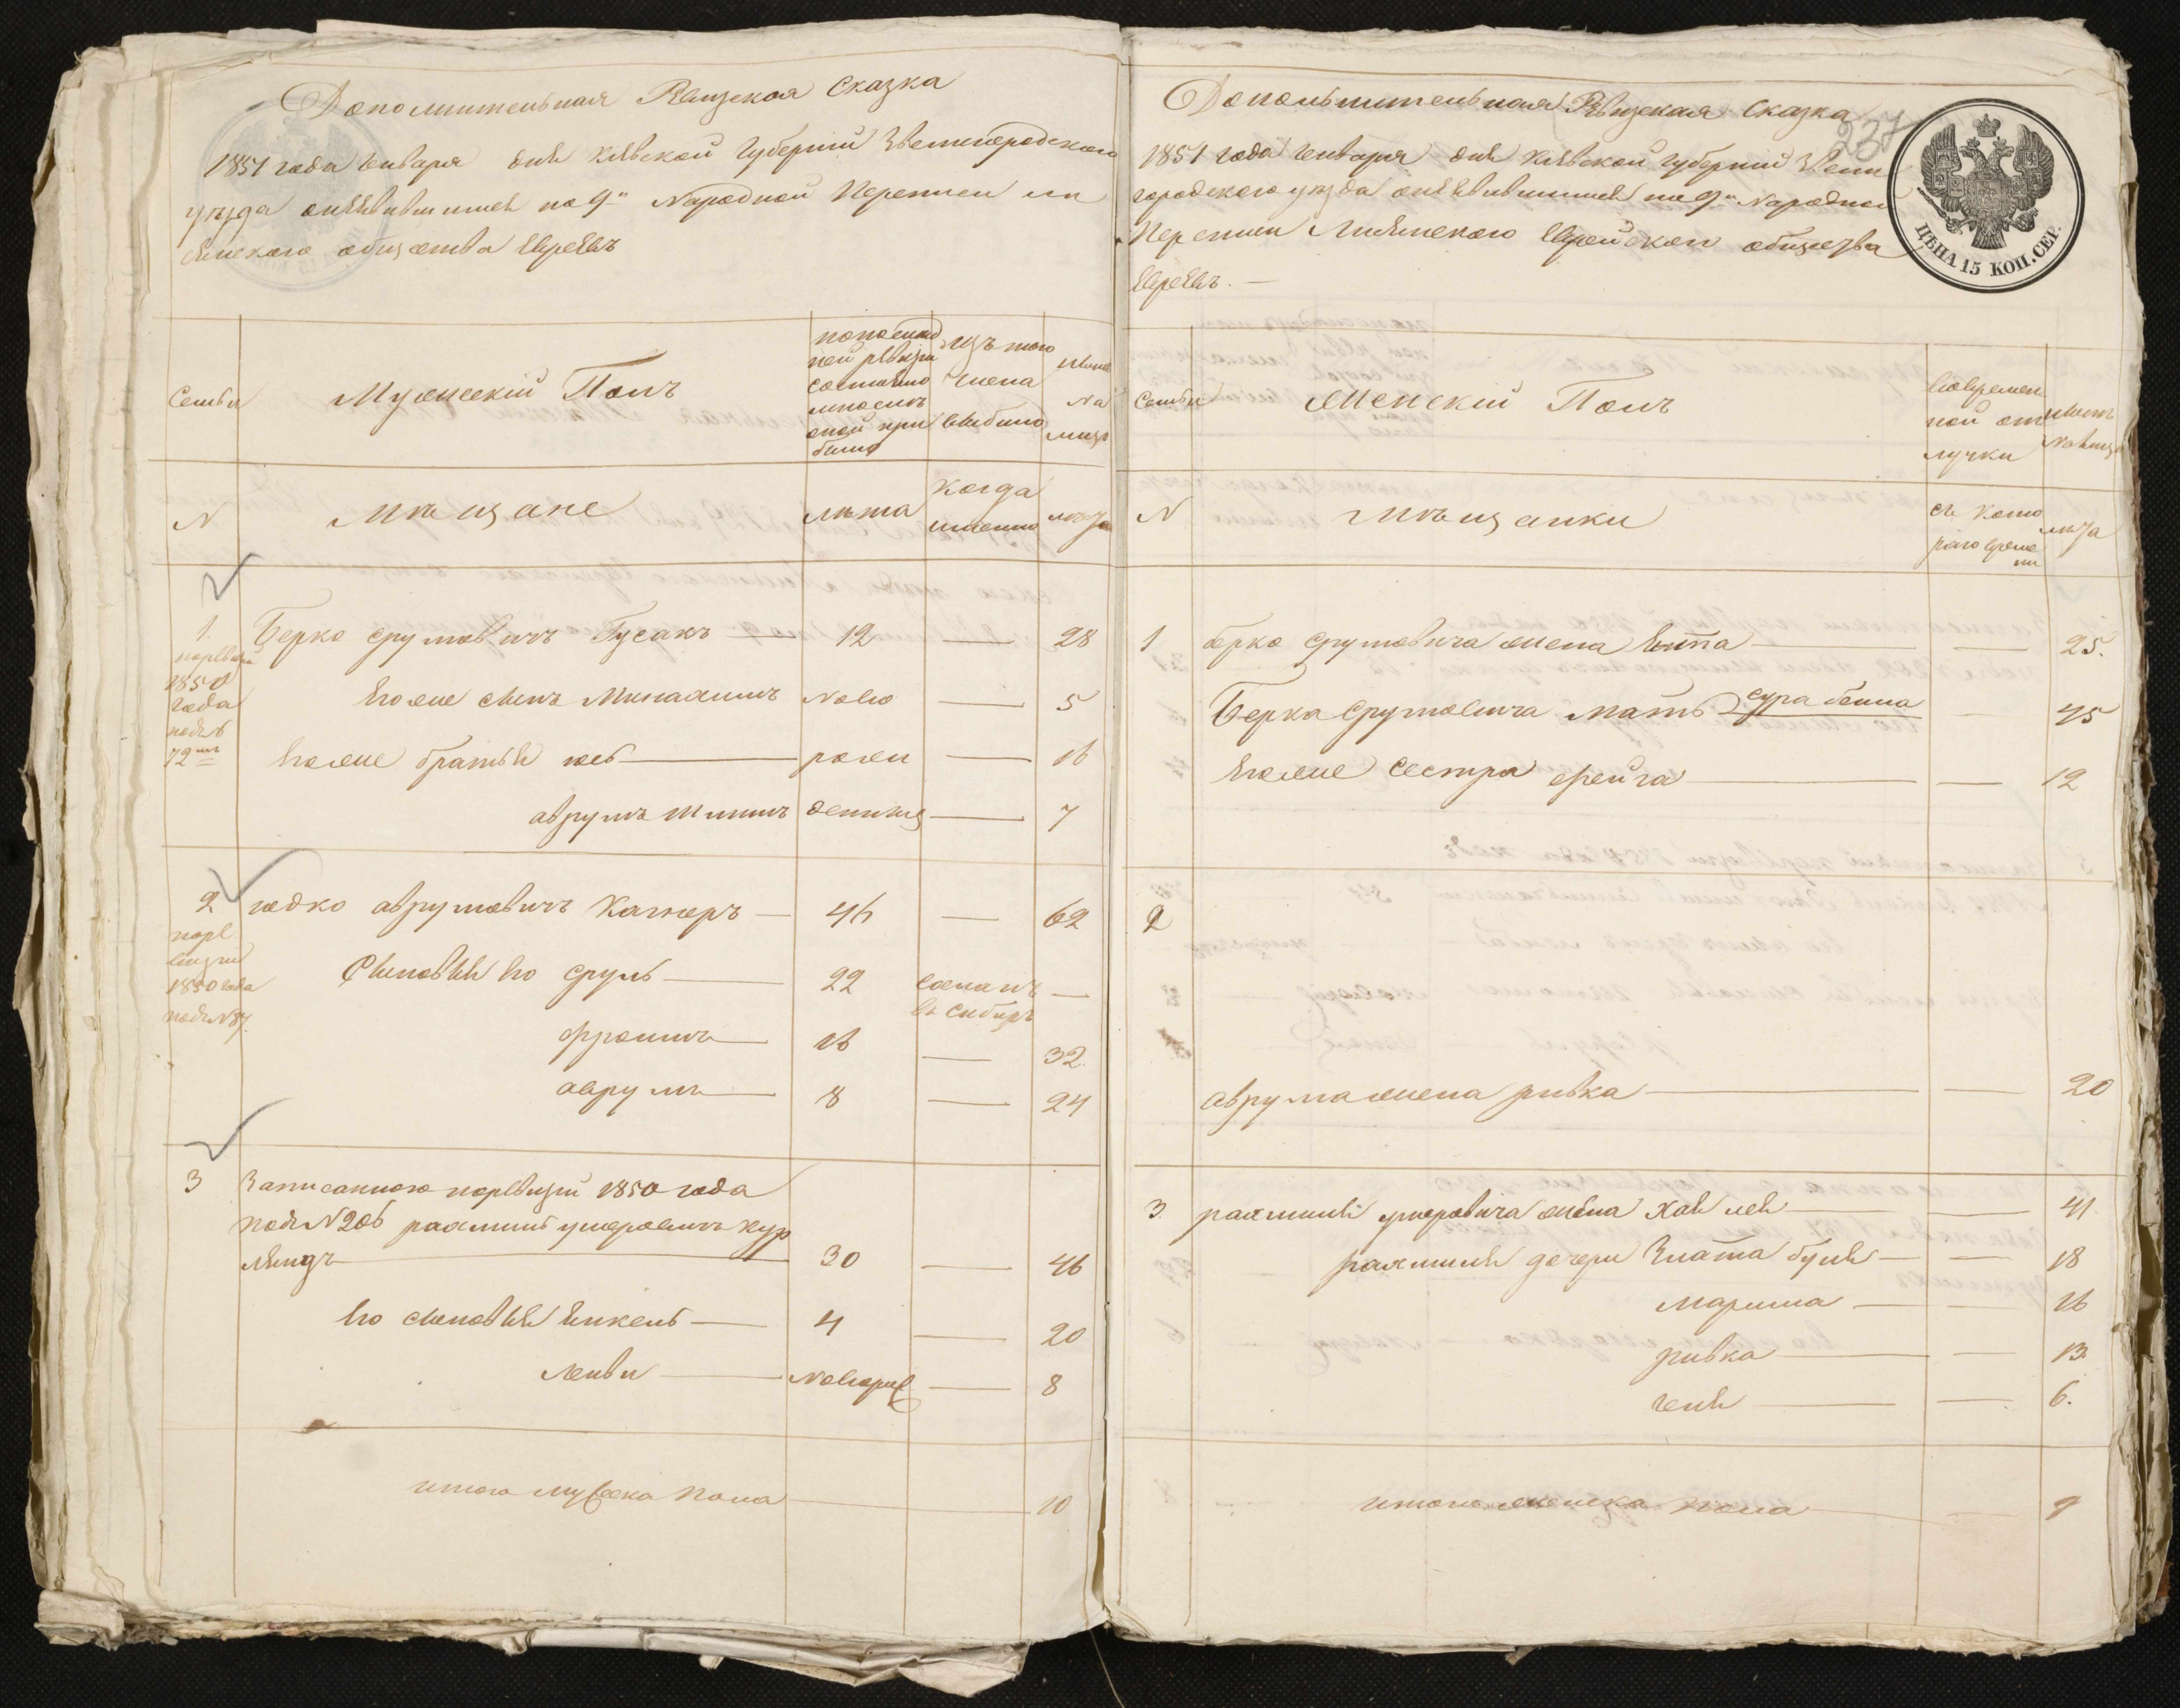 Дополнительная Ревизская Сказка
1851 года Генваря дня Киевской Губернии Звенигородского
уезда оказавшимся по 9й Народной Переписи Ли
сянского общества Евреевъ
Семьи
Мужескій Полъ
по последней ревизіи состояло
изъ того числа выбыло
ныне на лицо
N
Мещане
лета
когда именно
лета
1.
по ревизіи
1850
года
подъ N
72мъ
Берко Срумовичъ Гусакъ — 12 — 28
Его же сынъ Минахимъ Ново — 5
Его же братья Иось — рожд — 16
Аврумъ — 7
2
по ре
визіи
1850 года
подъ N 87.
Иодко Аврумовичъ — 46 — 62
Сыновья Его Сруль — 22 сосланъ —
въ Сибирь
Фроимъ — 16 — 32
Аврумъ — 8 — 24
3 Записанного по ревизіи 1850 года
подъ N 206 Рахмиль Кур
ляндъ — 30 — 46
Его сыновья Янкель — 4 — 20
Лейви — Новорож — 8
итого мужеска пола — 10
Дополнительная Ревизская Сказка
237
1851 года Генваря дня Киевской Губерніи Звени
городского уезда оказавшимся по 9й Народной
Переписи Лисянского Еврейского общества
Евреевъ. —
ЦѢНА 15 КОП. СЕР.
Семьи
Женскій Полъ
во временной отлучки
ныне на лицо
N
Мещанки
съ котораго времени
лета
1 Берко Срумовича жена Ента — — 25.
Берка Срумовича мать Сура Бейла — 45
Его же сестра Фрейга — — 12
2
Аврума жена Ривка — — 20
3. Рахмиля жена Хая Лея — — 41
Рахмиля дочери Злата Буня — — 18
Мариша — — 16
Ривка — — 13.
Геня — — 6.
итого женска пола — — 9